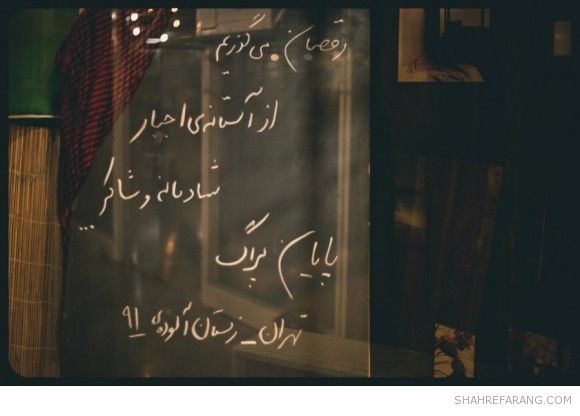 رقصان می‌گذریم
از آستانه‌ی اجبار
شادمانه و شاکر...
پایان پراگ
تهران - زمستان آلوده‌ی ۹۱
SHAHREFARANG.COM